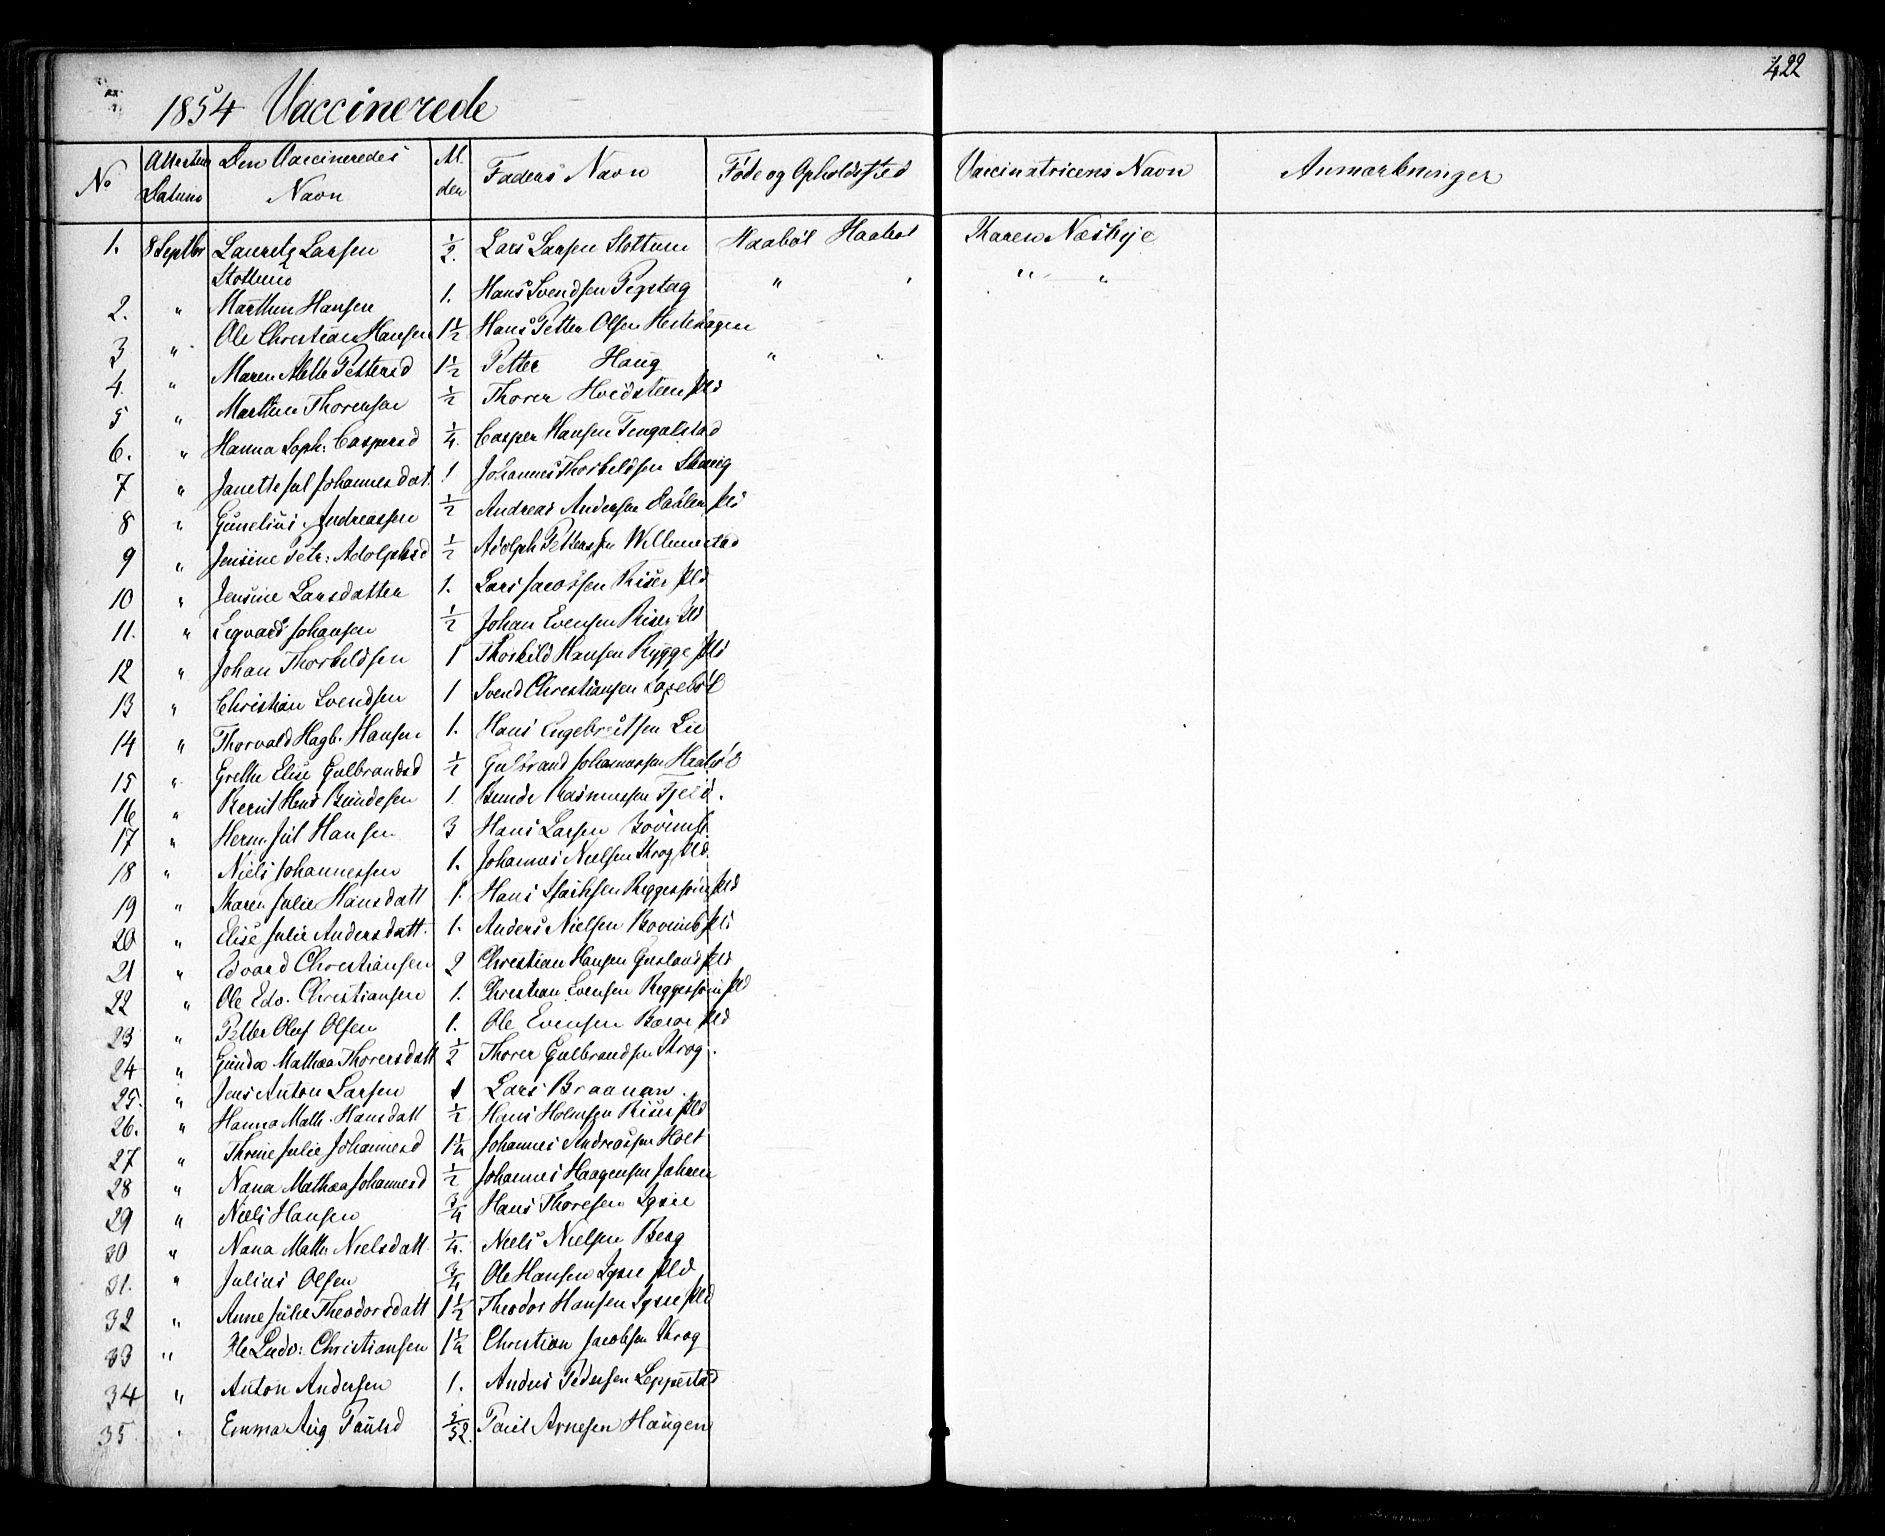 422
1854 Vaccinerede
No Attestens Datum Den Vaccineredes Navn Alderen Faders Navn Føde og Opholdssted Vaccinatricens Navn Anmærkninger
1. 8 Septbr Lauritz Larsen 1/2. Lars Larsen Stottum Haabøl Haabøl Karen Næskje
Stottum
2. " Marthin Hansen 1. Hans Svendsen " " " "
3 " Ole Christian Hansen 1 1/2 Hans Petter Olsen Hestehagen
4. " Maren Pettersd 1 1/2 Petter Haug " "
5 " Marthin Thorensen 1/2 Thorer Hvidsteen pld
6. " Hanna Soph: Caspersd 1/4. Casper Hansen Tengalstad
7 " Janette Jul Johannesdat. 1 Johannes Thorkildsen
8 " Andreassen 1/2 Andreas Andersen pld
9 " Jensine Petr: Adolphsd 1/2 Adolph Pettersen Willumstad
10 " Jensine Larsdatter 1. Lars Jacobsen Riser pld
11. " Sigvard Johansen 1/2 Johan Evensen Riser pld
12 " Johan Thorkildsen 1 Thorkild Hansen Rygge pld
13 " Christian Svendsen 1 Svend Christiansen
14 " Thorvald Hagb. Hansen 1. Hans Engebretsen Lie
15 " Grethe Elise Gulbrandsd 1/2 Gulbrand Johannessen Haabøl
16 " Bernt Hans Bundesen 1. Bunde Rasmussen Fjeld.
17 " Herm. Jul Hansen 3 Hans Larsen
18 " Niels Johannessen 1. Johannes Nielsen Krog pld.
19 " Karen Julie Hansdatt 1. Hans pld
20 " Elise Julie Andersdatt. 1. Anders Nielsen pld
21 " Edvard Christiansen 2 Christian Hansen pld
22 " Ole Edv. Christiansen 1. Christian Evensen pld
23 " Petter Oluf Olsen 1. Ole Evensen pld
24 " Gunda Mathea Thorersdatt 1/2 Thorer Gulbrandsen Krog.
25. " Jens Anton Larsen 1 Lars Braanan.
26. " Hanna Math. Hansdatt 1/2 Hans Holmsen Riser pld
27 " Thrine Julie Johannesd 1 1/4 Johannes Andreassen Holt
28 " Nana Mathea Johannesd 1/2 Johannes Haagensen Jahren
29 " Niels Hansen 3/4 Hans Thoresen Igsie
30 " Nana Math: Nielsdatt. 1/4. Niels Nielsen Berg
31. " Julius Olsen 3/4 Ole Hansen Igsie pld
32 " Anne Julie Theodorsdatt 1 1/2 Theodor Hansen Igsie pld
33 " Ole Ludv: Christiansen 1 1/4 Christian Jacobsen Krog
34 " Anton Andersen 1. Anders Pedersen Leppestad
35 " Emma Aug Paulsd 5/52. Paul Arnesen Haugen